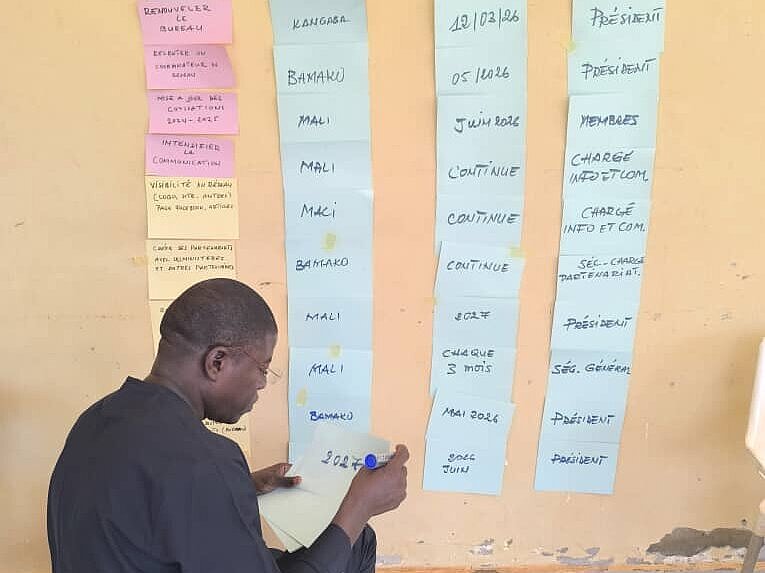 RENOUVELER
LE
BUREAU
KANGABA
12/03/26
PRÉSIDENT
RÉSEAU
BAMAKO
05/2026
PRÉSIDENT
MISE A JOUR DES
COTISATIONS
2024-2025
MALI
JUIN 2026
MEMBRES
INTENSIFIER
LA
COMMUNICATION
MALI
CONTINUE
CHARGÉ
INFO ET COM.
VISIBILITÉ DU RÉSEAU
(LOGO, SITE,
PAGE FACEBOOK, ARTICLES
MALI
CONTINUE
CHARGÉ
INFO ET COM.
CRÉER DES PARTENARIATS
AVEC
ET AUTRES PARTENAIRES
BAMAKO
CONTINUE
SÉC-CHARGÉ
PARTENARIAT.
MALI
2027
PRÉSIDENT
MALI
CHAQUE
3 MOIS
SÉG. GÉNÉRAL
BAMAKO
MAI 2026
PRÉSIDENT
2026
JUIN
PRÉSIDENT
2027